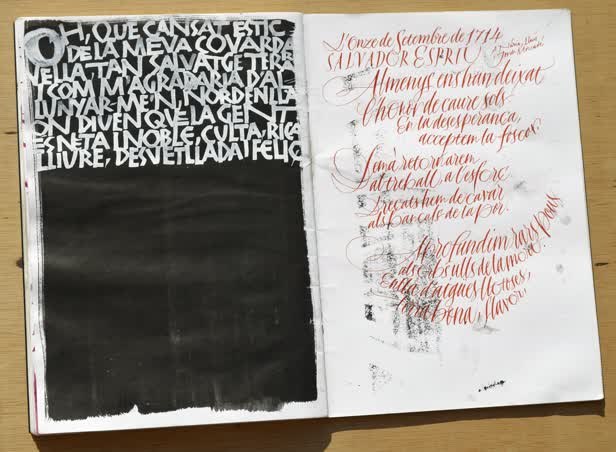 OH, QUE CANSAT ESTIC
DE LA MEVA COVARDA
VELLA, TAN SALVATGE TERRA
I COM M'AGRADARIA D'AL
LUNYAR-ME'N, NORD ENLLÀ
ON DIUEN QUE LA GENT
ÉS NETA I NOBLE, CULTA, RICA
LLIURE, DESVETLLADA I FELIÇ
L'Onze de Setembre de 1714
SALVADOR ESPRIU
Almenys ens han deixat
l'honor de caure sols
En la desesperança,
acceptem la foscor
Demà retornarem
al treball, a l'esforç
Dreçats hem de cavar
als bancals de la por.
Aprofundim rars pous
als
ulls de la mort.
Enllà d'aigües lloroses,
bena, llavor.